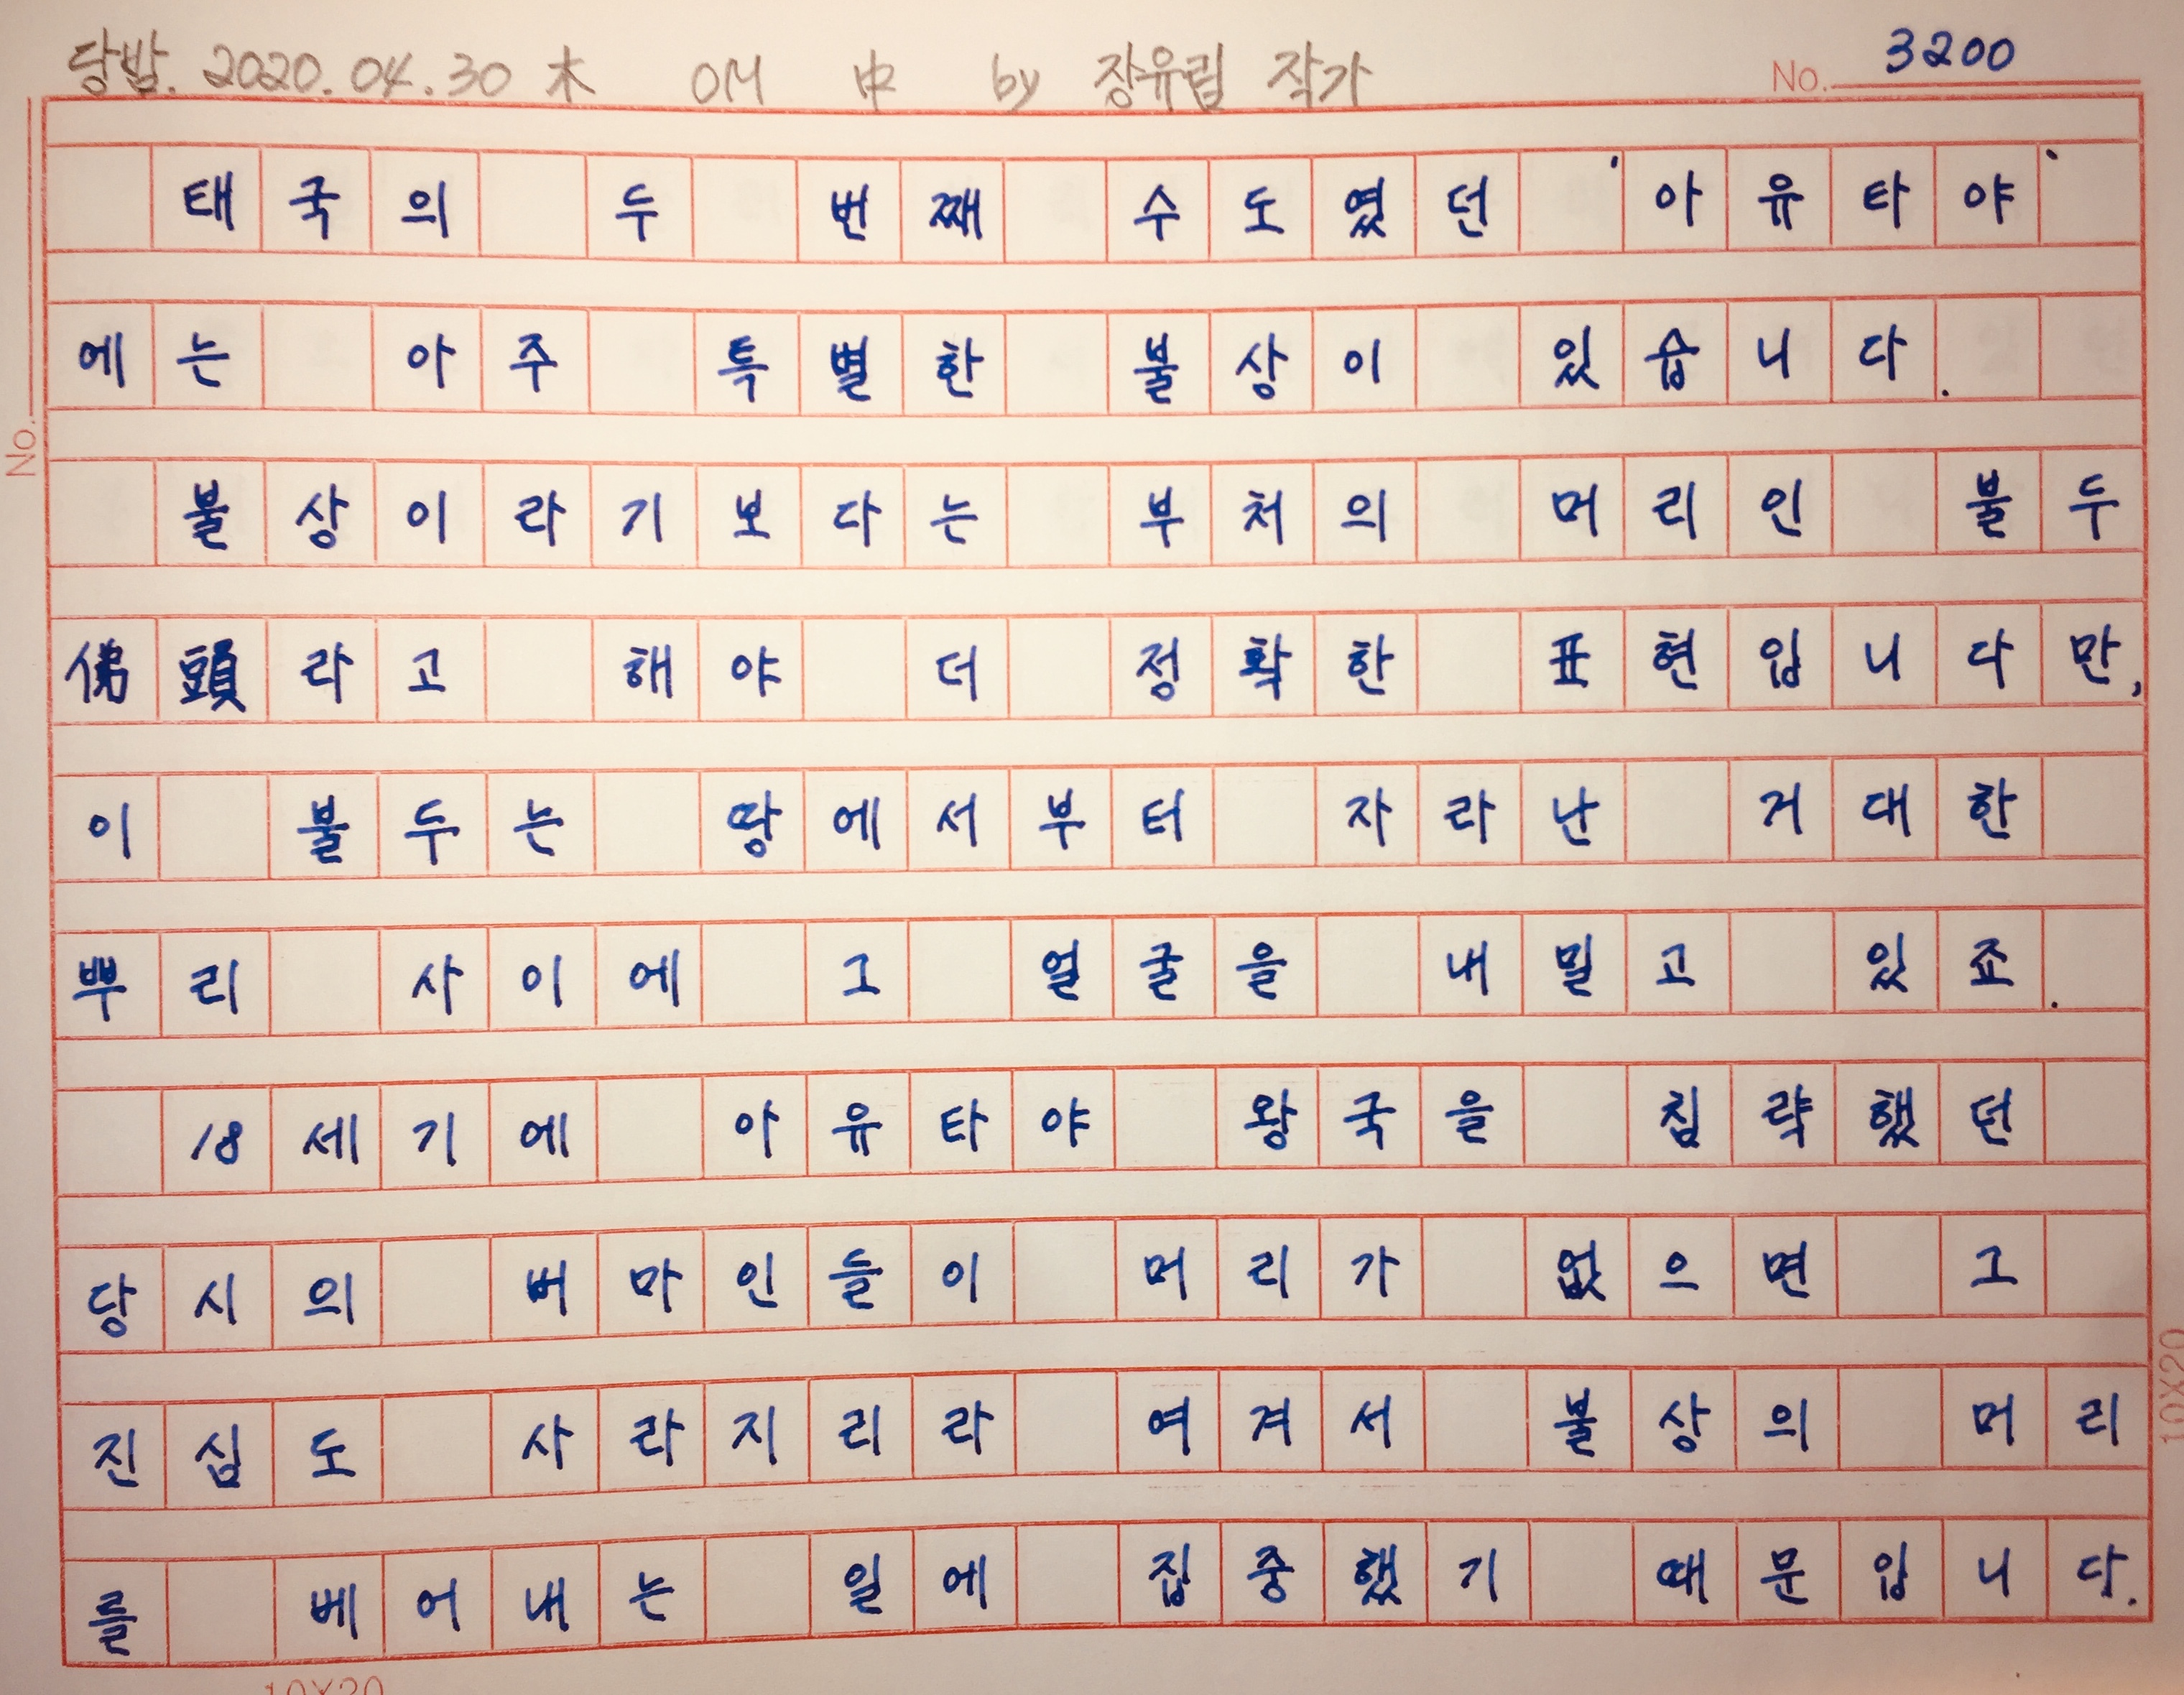 당밤. 2020.04.30 木 OM 中 by 장유림 작가
No. 3200
태국의 두 번째 수도였던 '아유타야'
에는 아주 특별한 불상이 있습니다.
불상이라기보다는 부처의 머리인 불두
佛頭라고 해야 더 정확한 표현입니다만,
이 불두는 땅에서부터 자라난 거대한
뿌리 사이에 그 얼굴을 내밀고 있죠.
18세기에 아유타야 왕국을 침략했던
당시의 버마인들이 머리가 없으면 그
진심도 사라지리라 여겨서 불상의 머리
를 베어내는 일에 집중했기 때문입니다.
No.
10X20
10X20